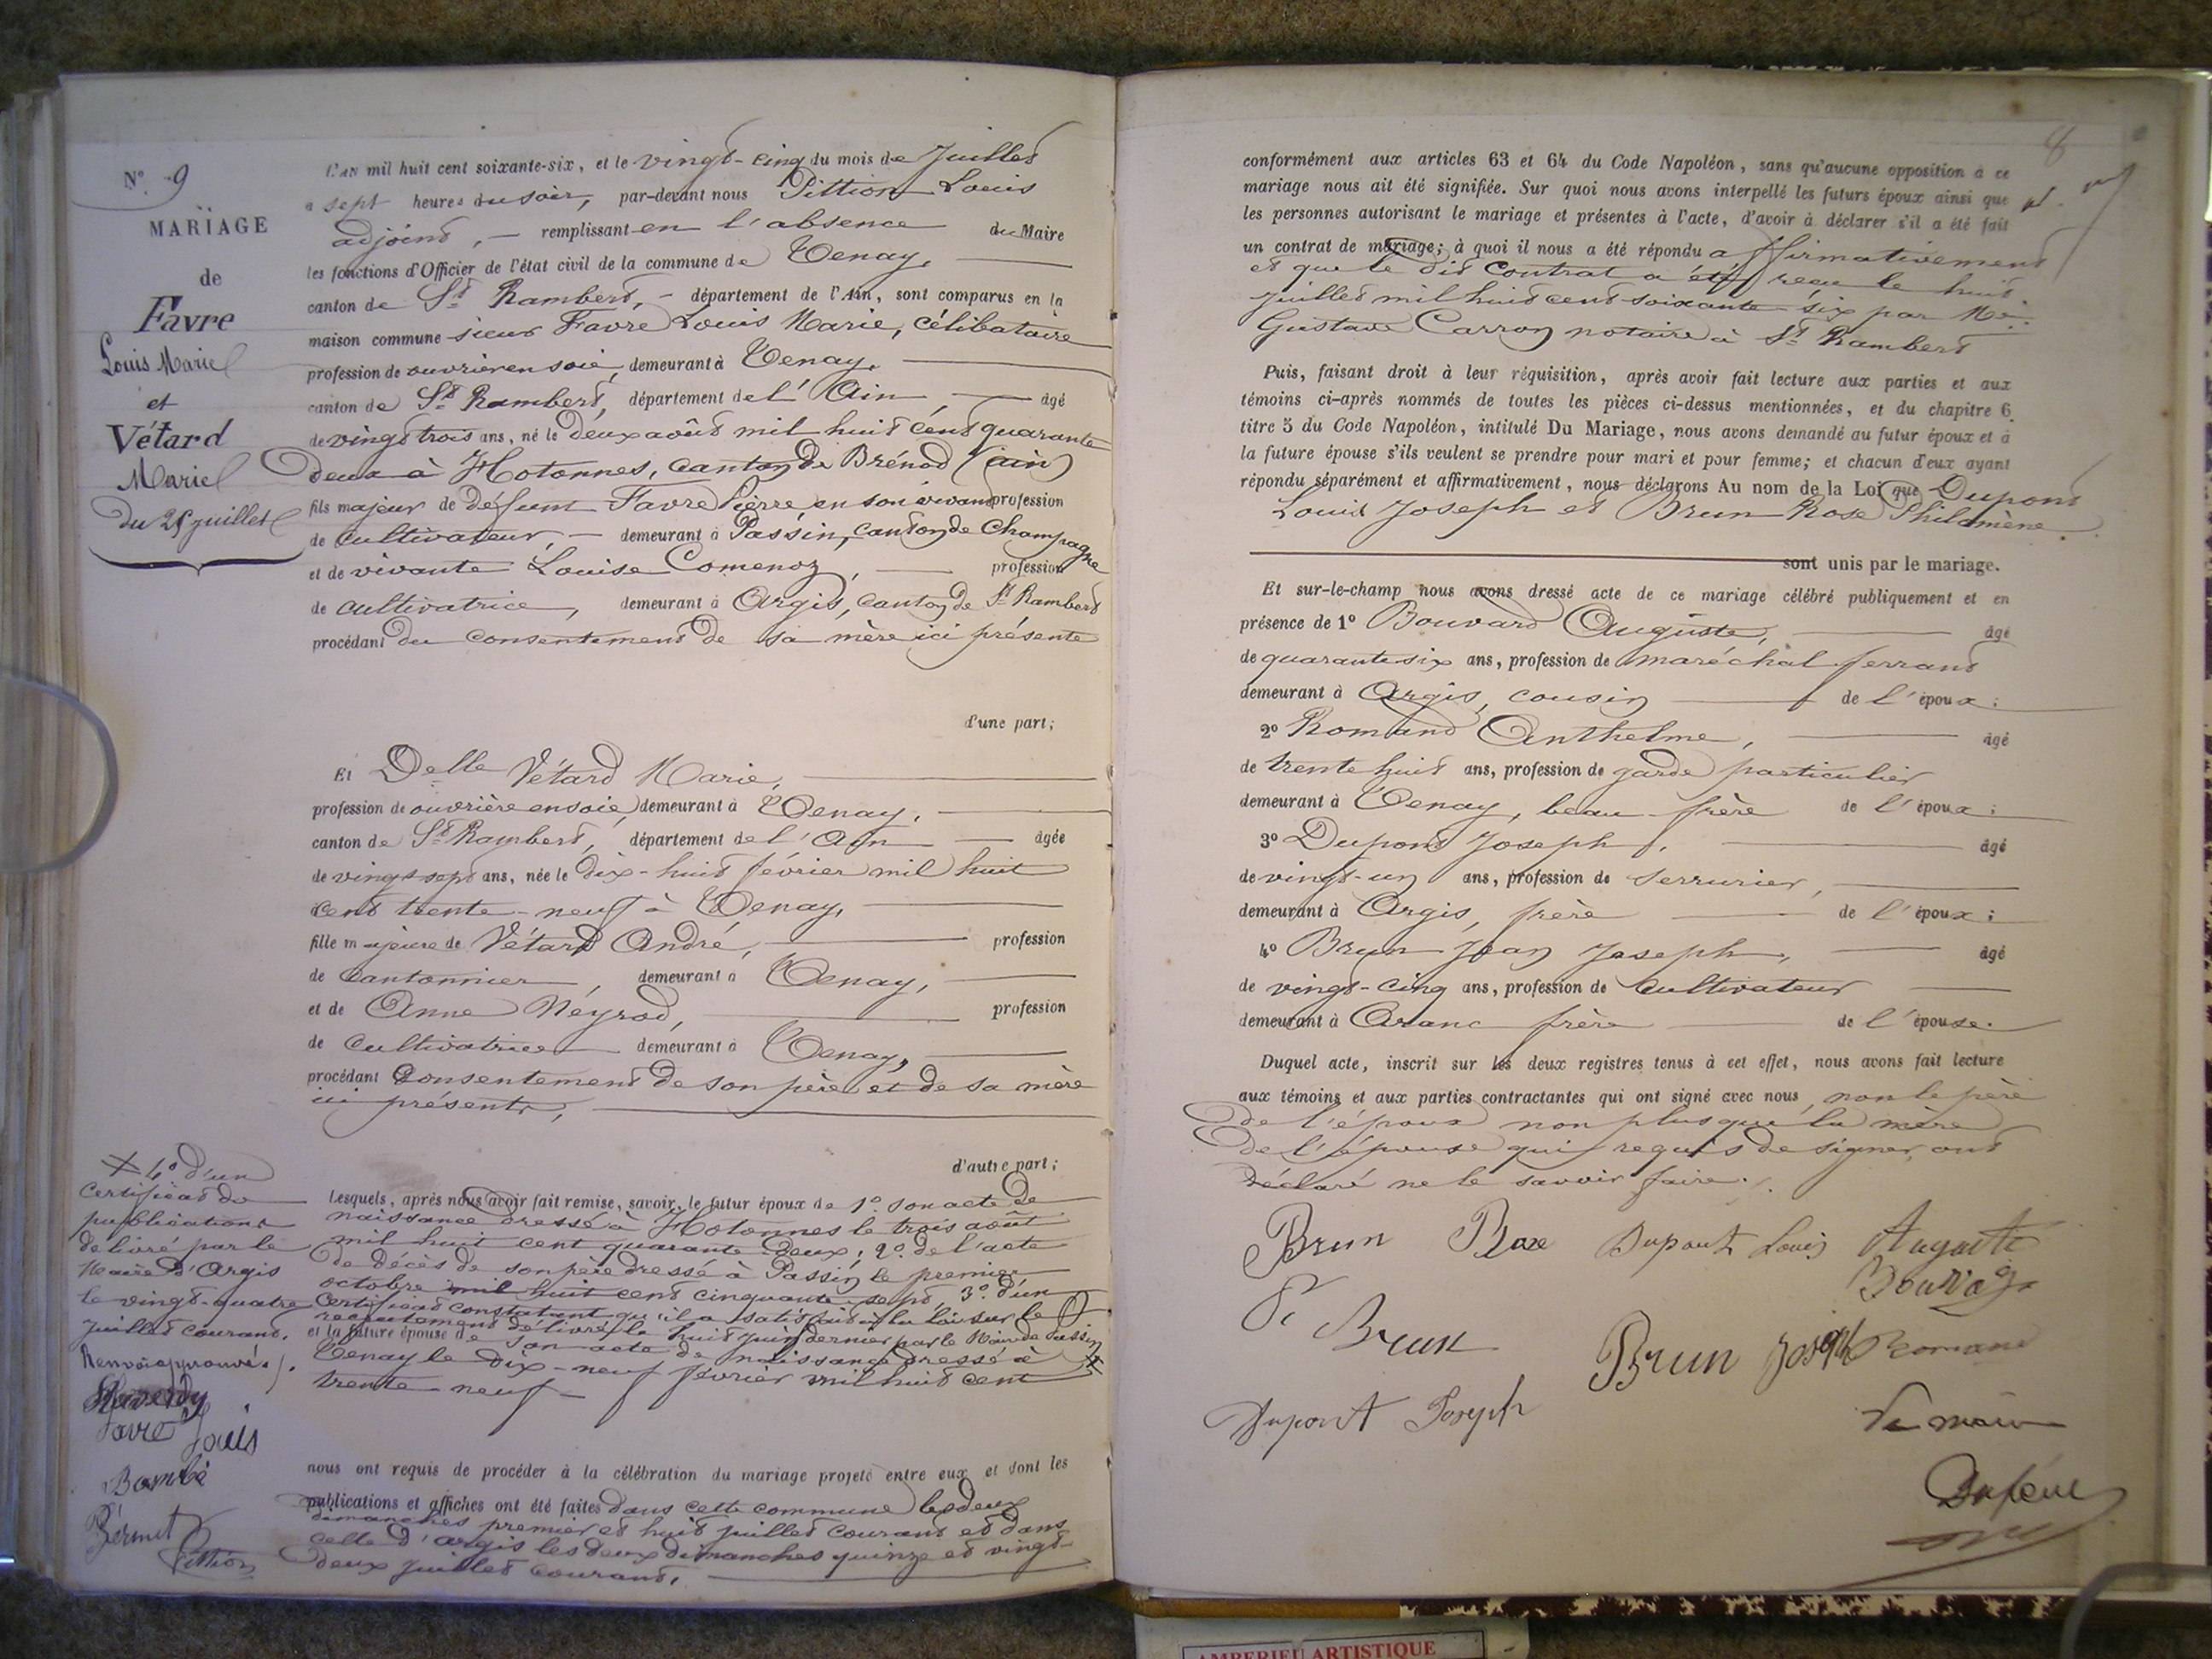 N° 9
MARIAGE
de
Favre
Louis Marie
et
Vétard
Marie
du 25 juillet
L'an mil huit cent soixante-six, et le vingt-cinq du mois de Juillet
à sept heures du soir, par-devant nous Pittion Louis
adjoint, remplissant en l'absence du Maire
les fonctions d'Officier de l'état civil de la commune de Tenay,
canton de St Rambert, département de l'Ain, sont comparus en la
maison commune sieur Favre Louis Marie, célibataire
profession de ouvrier en soie, demeurant à Tenay,
canton de St Rambert, département de l'Ain, âgé
de vingt trois ans, né le deux août mil huit cent quarante
deux à Hotonnes, canton de Brénod (ain)
fils majeur de défunt Favre Pierre, en son vivant profession
de cultivateur, demeurant à Passin, canton de Champagne
et de vivante Louise Comenoz, profession
de cultivatrice, demeurant à Argis, canton de St Rambert
procédant du consentement de sa mère ici présente
d'une part;
Et Delle Vétard Marie,
profession de ouvrière en soie, demeurant à Tenay,
canton de St Rambert, département de l'Ain âgée
de vingt-sept ans, née le dix-huit février mil huit
cent trente-neuf à Tenay,
fille majeure de Vétard André, profession
de cantonnier, demeurant à Tenay,
et de Anne Néyrod, profession
de cultivatrice demeurant à Tenay,
procédant consentement de son père et de sa mère
ici présents,
d'autre part;
Lesquels, après nous avoir fait remise, savoir, le futur époux de 1° son acte de
naissance dressé à Hotonnes le trois août
mil huit cent quarante-deux; 2° de l'acte
de décès de son père dressé à Passin le premier
octobre mil huit cent cinquante-sept, 3° d'un
certificat constatant qu'il a satisfait à la loi sur le
recrutement délivré le huit juin dernier par le Maire de Passin
et la future épouse de son acte de naissance dressé à
Tenay le dix-neuf février mil huit cent
trente-neuf
nous ont requis de procéder à la célébration du mariage projeté entre eux et dont les
publications et affiches ont été faites dans cette commune les deux
dimanches premier et huit juillet courant et dans
celle d'Argis les deux dimanches quinze et vingt-
deux juillet courant,
4° d'un
certificat de
publications
délivré par le
Maire d'Argis
le vingt-quatre
juillet courant.
Renvoi approuvé
Favre Louis
Pittion
8
conformément aux articles 63 et 64 du Code Napoléon, sans qu'aucune opposition à ce
mariage nous ait été signifiée. Sur quoi nous avons interpellé les futurs époux ainsi que
les personnes autorisant le mariage et présentes à l'acte, d'avoir à déclarer s'il a été fait
un contrat de mariage; à quoi il nous a été répondu affirmativement
et que le dit contrat a été reçu le huit
juillet mil huit cent soixante six par Me
Gustave Carron notaire à St Rambert
Puis, faisant droit à leur réquisition, après avoir fait lecture aux parties et aux
témoins ci-après nommés de toutes les pièces ci-dessus mentionnées, et du chapitre 6
titre 5 du Code Napoléon, intitulé Du Mariage, nous avons demandé au futur époux et à
la future épouse s'ils veulent se prendre pour mari et pour femme; et chacun d'eux ayant
répondu séparément et affirmativement, nous déclarons Au nom de la Loi que Dupont
Louis Joseph et Brun Rose Philomène
sont unis par le mariage.
Et sur-le-champ nous avons dressé acte de ce mariage célébré publiquement et en
présence de 1° Bouvard Auguste, âgé
de quarante six ans, profession de maréchal ferrant
demeurant à Argis, cousin de l'époux;
2° Romand Anthelme, âgé
de trente huit ans, profession de garde particulier
demeurant à Tenay, beau-frère de l'époux;
3° Dupont Joseph, âgé
de vingt-un ans, profession de serrurier,
demeurant à Argis, frère de l'époux;
4° Brun Jean Joseph, âgé
de vingt-cinq ans, profession de cultivateur
demeurant à Aranc frère de l'épouse.
Duquel acte, inscrit sur les deux registres tenus à cet effet, nous avons fait lecture
aux témoins et aux parties contractantes qui ont signé avec nous, non le père
de l'époux non plus que la mère
de l'épouse qui requis de signer, ont
déclaré ne le savoir faire.
Brun Roze Dupont Louis Auguste
Bouvard
Brun
Brun Joseph Romand
Dupont Joseph
Le maire
AMBERIEU ARTISTIQUE